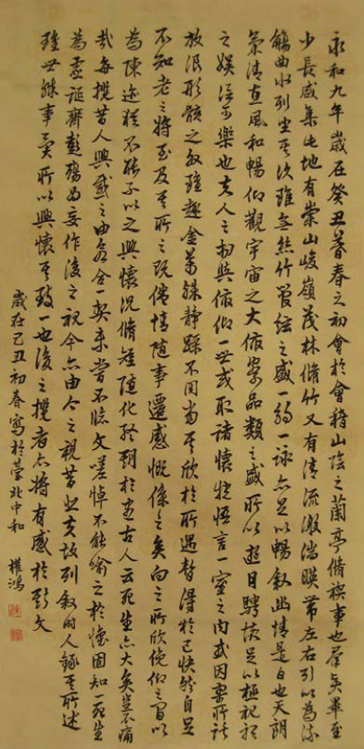 永和九年歲在癸丑暮春之初會於會稽山陰之蘭亭脩禊事也群賢畢至
少長咸集此地有崇山峻嶺茂林脩竹又有清流激湍暎帶左右引以為流
觴曲水列坐其次雖無絲竹管弦之盛一觴一詠亦足以暢敘幽情是日也天朗
氣清惠風和暢仰觀宇宙之大俯察品類之盛所以遊目騁懷足以極視聽
之娛信可樂也夫人之相與俯仰一世或取諸懷抱悟言一室之內或因寄所託
放浪形骸之外雖趣舍萬殊靜躁不同當其欣於所遇暫得於己快然自足
不知老之將至及其所之既倦情隨事遷感慨係之矣向之所欣俛仰之間以
為陳迹猶不能不以之興懷況脩短隨化終期於盡古人云死生亦大矣豈不痛
哉每攬昔人興感之由若合一契未嘗不臨文嗟悼不能喻之於懷固知一死生
為虛誕齊彭殤為妄作後之視今亦由今之視昔悲夫故列敘時人錄其所述
雖世殊事異所以興懷其致一也後之攬者亦將有感於斯文
歲在己丑初春寫於北中和 鴻